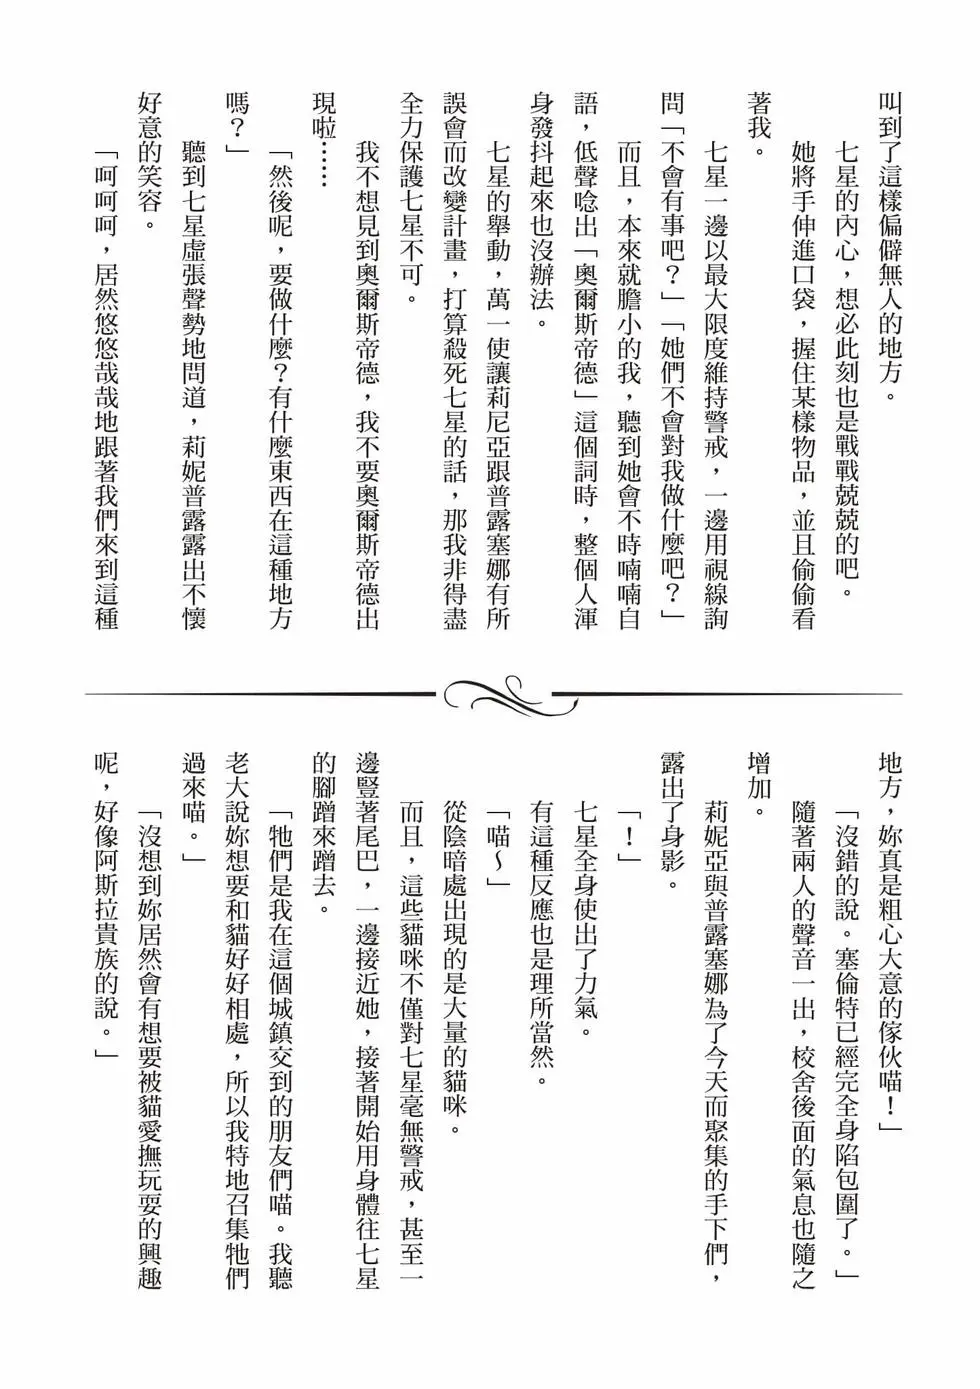 叫到了這樣偏僻無人的地方。
七星的內心，想必此刻也是戰戰兢兢的吧。
她將手伸進口袋，握住某樣物品，並且偷偷看
著我。
七星一邊以最大限度維持警戒，一邊用視線詢
問「不會有事吧？」「她們不會對我做什麼吧？」
而且，本來就膽小的我，聽到她會不時喃喃自
語，低聲唸出「奧爾斯帝德」這個詞時，整個人渾
身發抖起來也沒辦法。
七星的舉動，萬一使讓莉尼亞跟普露塞娜有所
誤會而改變計畫，打算殺死七星的話，那我非得盡
全力保護七星不可。
我不想見到奧爾斯帝德，我不要奧爾斯帝德出
現啦……
「然後呢，要做什麼？有什麼東西在這種地方
嗎？」
聽到七星虛張聲勢地問道，莉妮普露露出不懷
好意的笑容。
「呵呵呵，居然悠悠哉哉地跟著我們來到這種
地方，妳真是粗心大意的傢伙喵！」
「沒錯的說。塞倫特已經完全身陷包圍了。」
隨著兩人的聲音一出，校舍後面的氣息也隨之
增加。
莉妮亞與普露塞娜為了今天而聚集的手下們，
露出了身影。
「！」
七星全身使出了力氣。
有這種反應也是理所當然。
「喵～」
從陰暗處出現的是大量的貓咪。
而且，這些貓咪不僅對七星毫無警戒，甚至一
邊豎著尾巴，一邊接近她，接著開始用身體往七星
的腳蹭來蹭去。
「牠們是我在這個城鎮交到的朋友們喵。我聽
老大說妳想要和貓好好相處，所以我特地召集牠們
過來喵。」
「沒想到妳居然會有想要被貓愛撫玩耍的興趣
呢，好像阿斯拉貴族的說。」